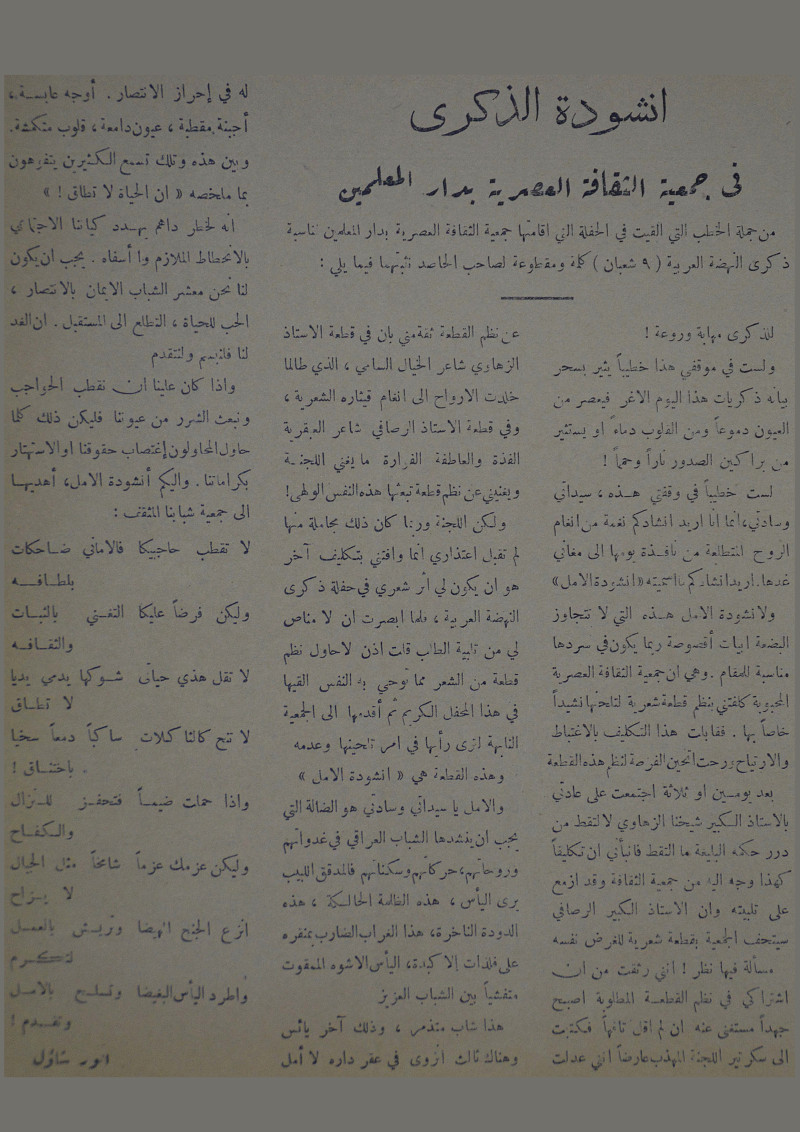 انشودة الذكرى
في جمعية الثقافة العصرية بدار المعلمين
من جملة الخطب التي القيت في الحفلة التي اقامتها جمعية الثقافة العصرية بدار المعلمين لمناسبة
ذكرى النهضة العربية ( ٩ شعبان ) كلمة ومقطوعة لصاحب الحاصد نثبتهما فيما يلي :
للذكرى مهابة وروعة !
ولست في موقفي هذا خطيباً يثير بسحر
بيانه ذكريات هذا اليوم الاغر فيعصر من
العيون دموعاً ومن القلوب دماءً او يستثير
من براكين الصدور ناراً وحمماً !
لست خطيباً في وقفتي هذه ، سيداتي
وسادتي ، انما انا اريد انشادكم نغمة من انغام
الروح المتطلعة من نافذة يومها الى مغاني
غدها. اريد انشادكم ما اسميته « انشودة الامل »
ولانشودة الامل هذه التي لا تتجاوز
البضعة ابيات أقصوصة ربما يكون في سردها
مناسبة للمقام . وهي ان جمعية الثقافة العصرية
المحبوبة كلفتني بنظم قطعة شعرية لتلحنها نشيداً
خاصاً بها . فقابلت هذا التكليف بالاغتباط
والارتياح ورحت اتحين الفرصة لنظم هذه القطعة
بعد يومين او ثلاثة اجتمعت على عادتي
بالاستاذ الكبير شيخنا الزهاوي لالتقط من
درر حكمه البليغة ما التقط فانبأني ان تكليفاً
كهذا وجه اليه من جمعية الثقافة وقد ازمع
على تلبيته وان الاستاذ الكبير الرصافي
سيتحف الجمعية بقطعة شعرية للغرض نفسه
مسألة فيها نظر ! انني رثقت من ان
اشتراكي في نظم القطعة المطلوبة اصبح
جهداً مستغنى عنه ان لم اقل تافهاً فكتبت
الى سكرتير اللجنة المهذب عارضاً انني عدلت
عن نظم القطعة ثقة مني بان في قطعة الاستاذ
الزهاوي شاعر الخيال السامي ، الذي طالما
خلدت الارواح الى انغام قيثاره الشعرية ،
وفي قطعة الاستاذ الرصافي شاعر العبقرية
الفذة والعاطفة الفوارة ما يغني اللجنة
ويغنيني عن نظم قطعة تبعثها هذه النفس الولهى !
ولكن اللجنة وربما كان ذلك مجاملة منها
لم تقبل اعتذاري انما وافتني بتكليف آخر
هو ان يكون لي أثر شعري في حفلة ذكرى
النهضة العربية ، فلما ابصرت ان لا مناص
لي من تلبية الطلب قلت اذن لاحاول نظم
قطعة من الشعر مما توحي به النفس القيها
في هذا المحفل الكريم ثم أقدمها الى الجمعية
النابهة لترى رأيها في امر تلحينها وعدمه
وهذه القطعة هي « انشودة الامل »
والامل يا سيداتي وسادتي هو الضالة التي
يجب ان ينشدها الشباب العراقي في غدواتهم
وروحاتهم، حركاتهم وسكناتهم فالمدقق اللبيب
يرى اليأس ، هذه الظلمة الحالكة ، هذه
الدودة الناخرة، هذا الغراب الضارب بمنقره
على فلذات الاكبدة، اليأس الاشوه الممقوت
متفشياً بين الشباب العزيز
هذا شاب متذمر ، وذلك آخر يائس
وهناك ثالث انزوى في عقر داره لا أمل
له في إحراز الانتصار . أوجه عابسة ،
أجبنة مقطبة ، عيون دامعة ، قلوب متكمشة.
وبين هذه وتلك تسمع الكثيرين يتفوهون
بما ملخصه « ان الحياة لا تطاق ! »
انه لخطر داهم يهدد كياننا الاجتماعي
بالانحطاط الملازم وا أسفاه . يجب ان يكون
لنا نحن معشر الشباب الايمان بالانتصار ،
الحب للحياة ، التطلع الى المستقبل . ان الغد
لنا فلنبسم ولنتقدم
واذا كان علينا ان نقطب الحواجب
ونبعث الشرر من عيوننا فليكن ذلك كلما
حاول المحاولون إغتصاب حقوقنا او الاستهتار
بكراماتنا . واليكم أنشودة الامل، أهديها
الى جمعية شبابنا المثقف :
لا تقطب حاجبيكا فالاماني ضاحكات
بلطافه
وليكن فرضاً عليكا التغني بالثبات
والثقافه
لا تقل هذي حياتي شوكها يدمي يديا
لا تطاق
لا تنح كالثاكلات ساكباً دمعاً سخيا
باختناق !
واذا حملت ضيماً فتحفز للنزال
والكفاح
وليكن عزمك عزماً شامخاً مثل الجبال
لا يزاح
انزع الجنح المهيضا وتريش بالعمل
لتكرم
واطرد اليأس البغيضا وتسلح بالامل
وتقدم !
انور شاؤل